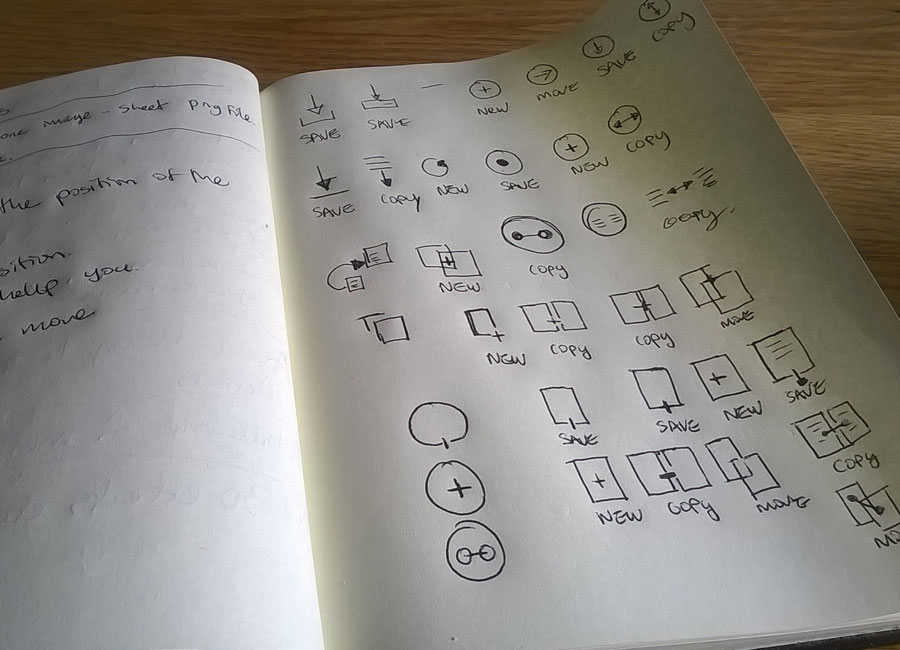 one image - sheet png file.
the position of the
sition.
help you.
move
SAVE SAVE NEW MOVE SAVE COPY
SAVE COPY NEW SAVE NEW COPY
NEW COPY COPY
NEW COPY COPY MOVE
SAVE SAVE NEW SAVE
NEW COPY MOVE COPY
MO